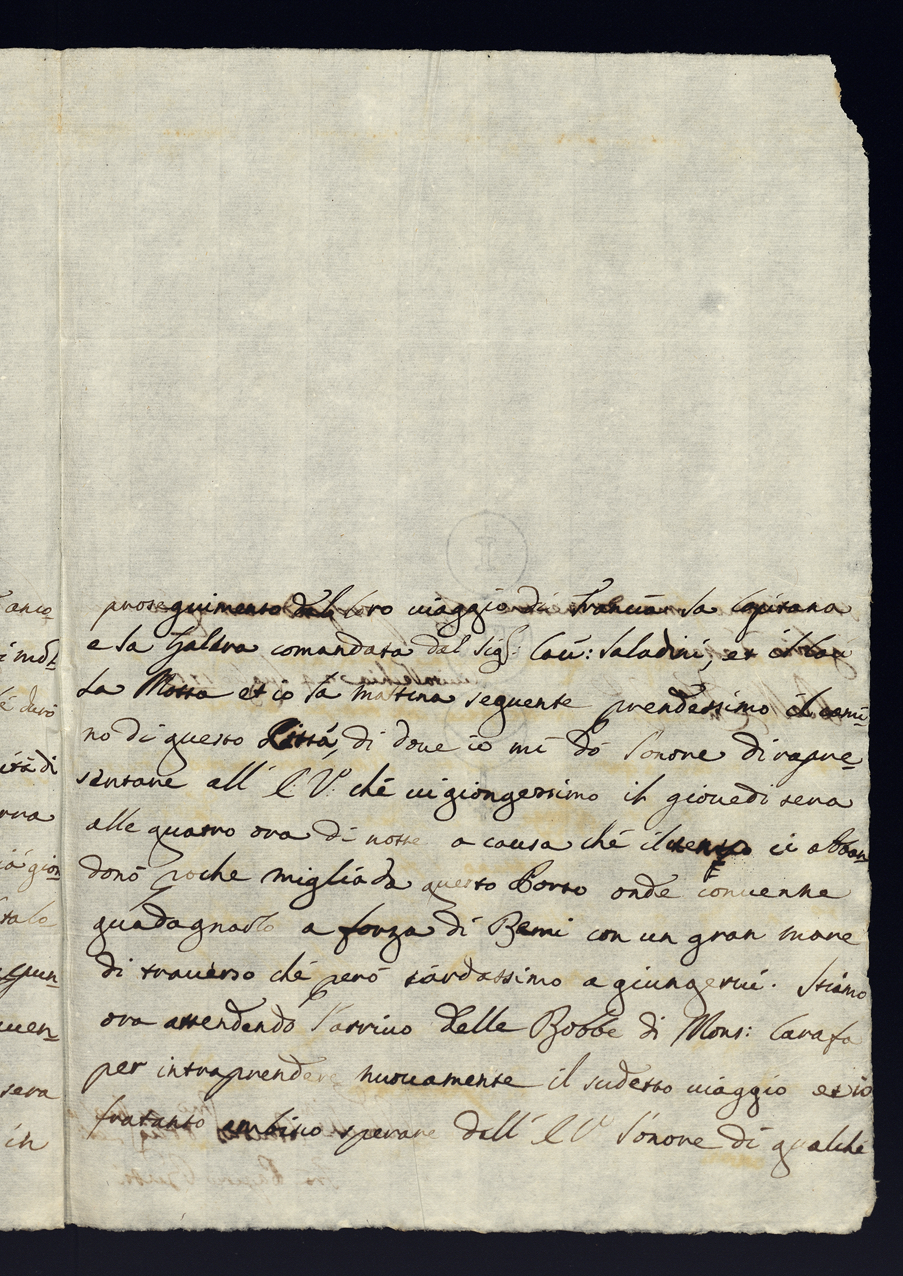 proseguimento del loro viaggio di Francia la Capitana
e la Galera comandata dal Sig:r Cav: Saladini, et il Cav:
La Motta et io la mattina seguente prendessimo il cami=
no di questo Città, di dove io mi dò l'onore di rapre=
sentare all' E: V: ché vi giongessimo il giovedi sera
alle quatro ora di notte a causa ché il tempo ci abban
donó poche miglia da questo Porto onde convenne
guadagnarlo a forza di Remi con un gran mare
di traverso ché però tardassimo a giungervi. Stiamo
ora attendendo l'arrivo delle Robbe di Mons: Carafa
per intraprendere nuovamente il sudetto viaggio et io
fratanto ambisco sperare dall' E V l'onore di qualché
anco=
durò
ità di
rra
ià gion
tale
quen=
sera
in